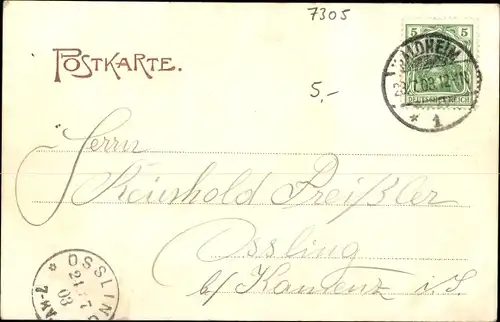 7305
POSTKARTE.
5,-
5 5
DEUTSCHES REICH
* 1
Herrn
Reinhold Preißler
Ossling
b/ Kamenz i. S.
OSSLING
24/7
03
7-8